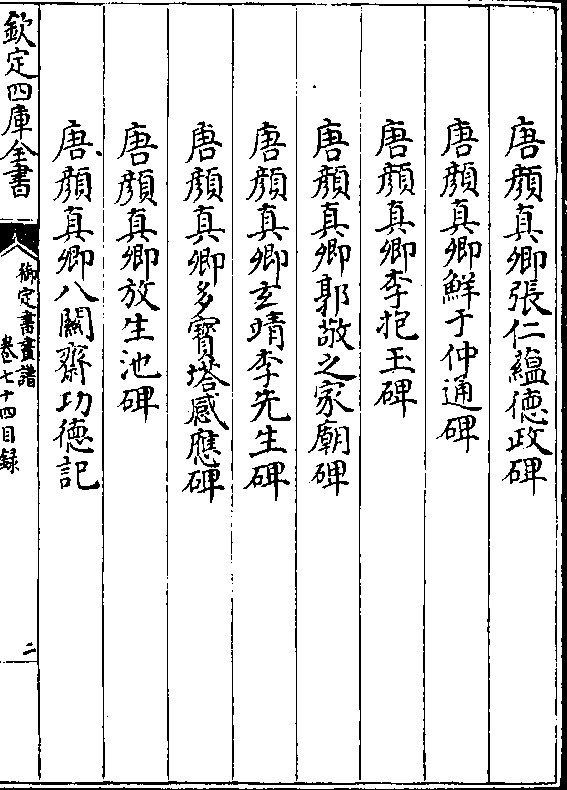 唐顔真卿張仁蘊德政碑
唐顔真卿鮮于仲通碑
唐顔真卿李抱玉碑
唐顔真卿郭敬之家廟碑
唐顔真卿玄靖李先生碑
唐顔真卿多寶塔感應碑
唐顔真卿放生池碑
唐顔真卿八關齋功德記
欽定四庫全書
御定書畫譜
卷七十四目録
二